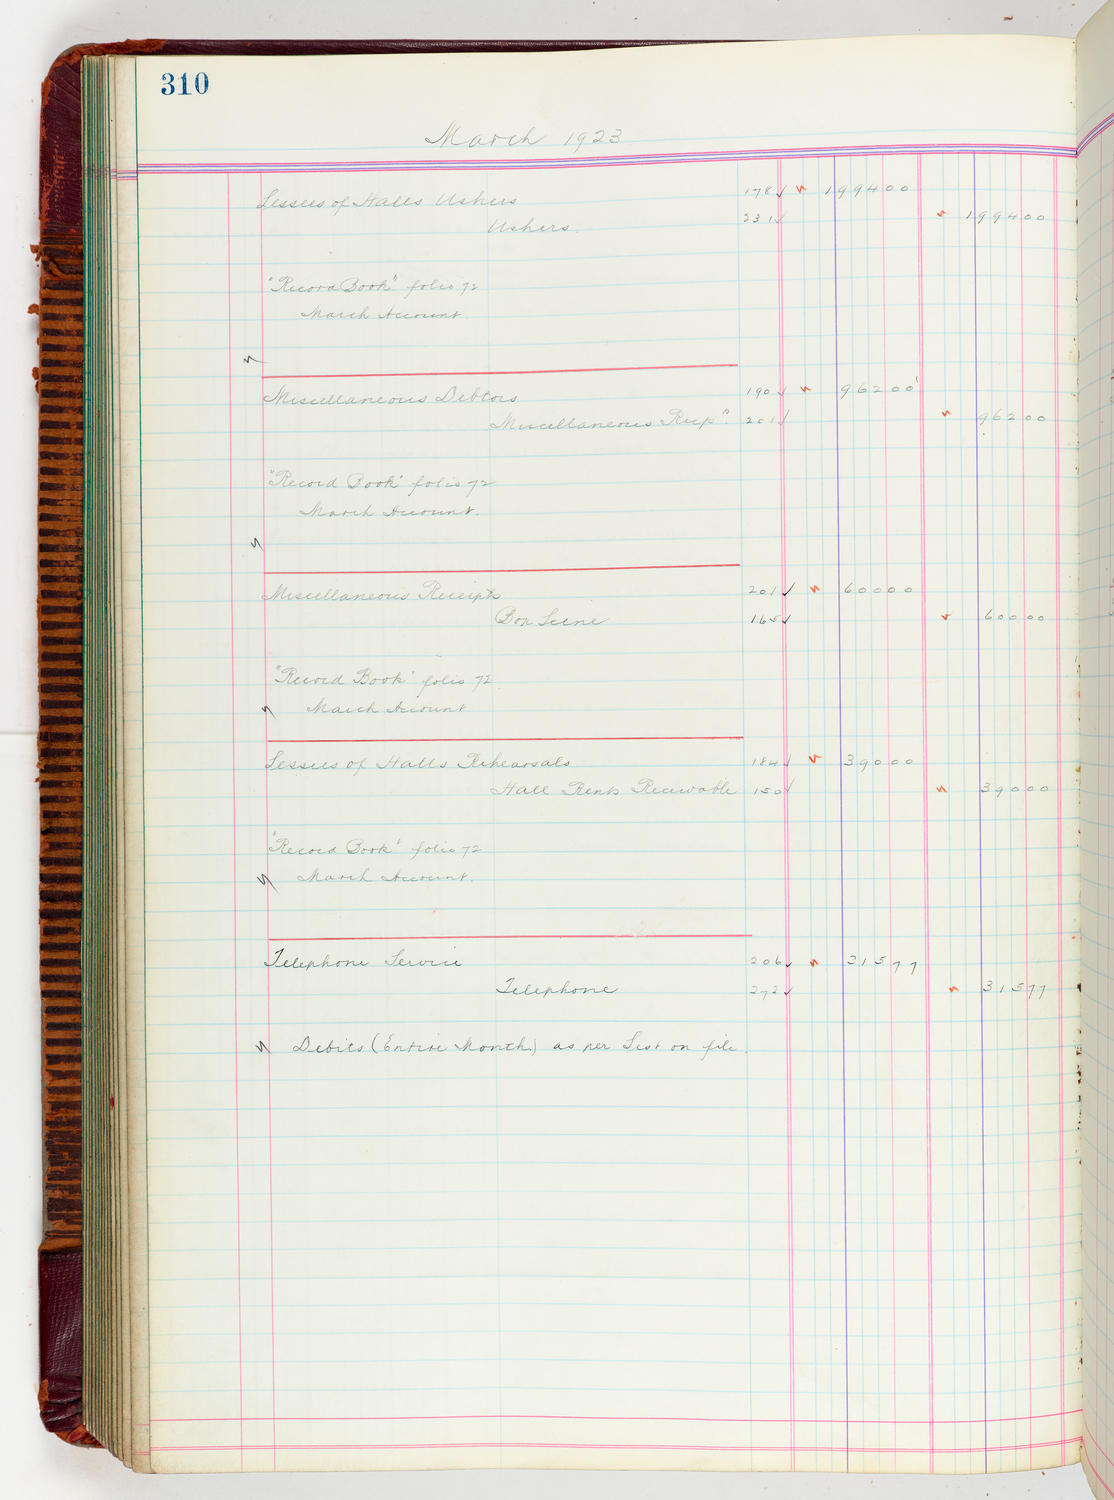 310
March 1923
Lessees of Halls Ushers 178 199400
Ushers. 231 199400
"Record Book" folio 72
March Account.
Miscellaneous Debtors 190 96200
Miscellaneous Recpts. 201 96200
"Record Book" folio 72
March Account.
Miscellaneous Receipts 201 60000
Box Scene 165 60000
"Record Book" folio 72
March Account
Lessees of Halls Rehearsals 184 39000
Hall Rents Receivable 150 39000
"Record Book" folio 72
March Account.
Telephone Service 206 31577
Telephone 272 31577
Debits (Entire Month) as per List on file.